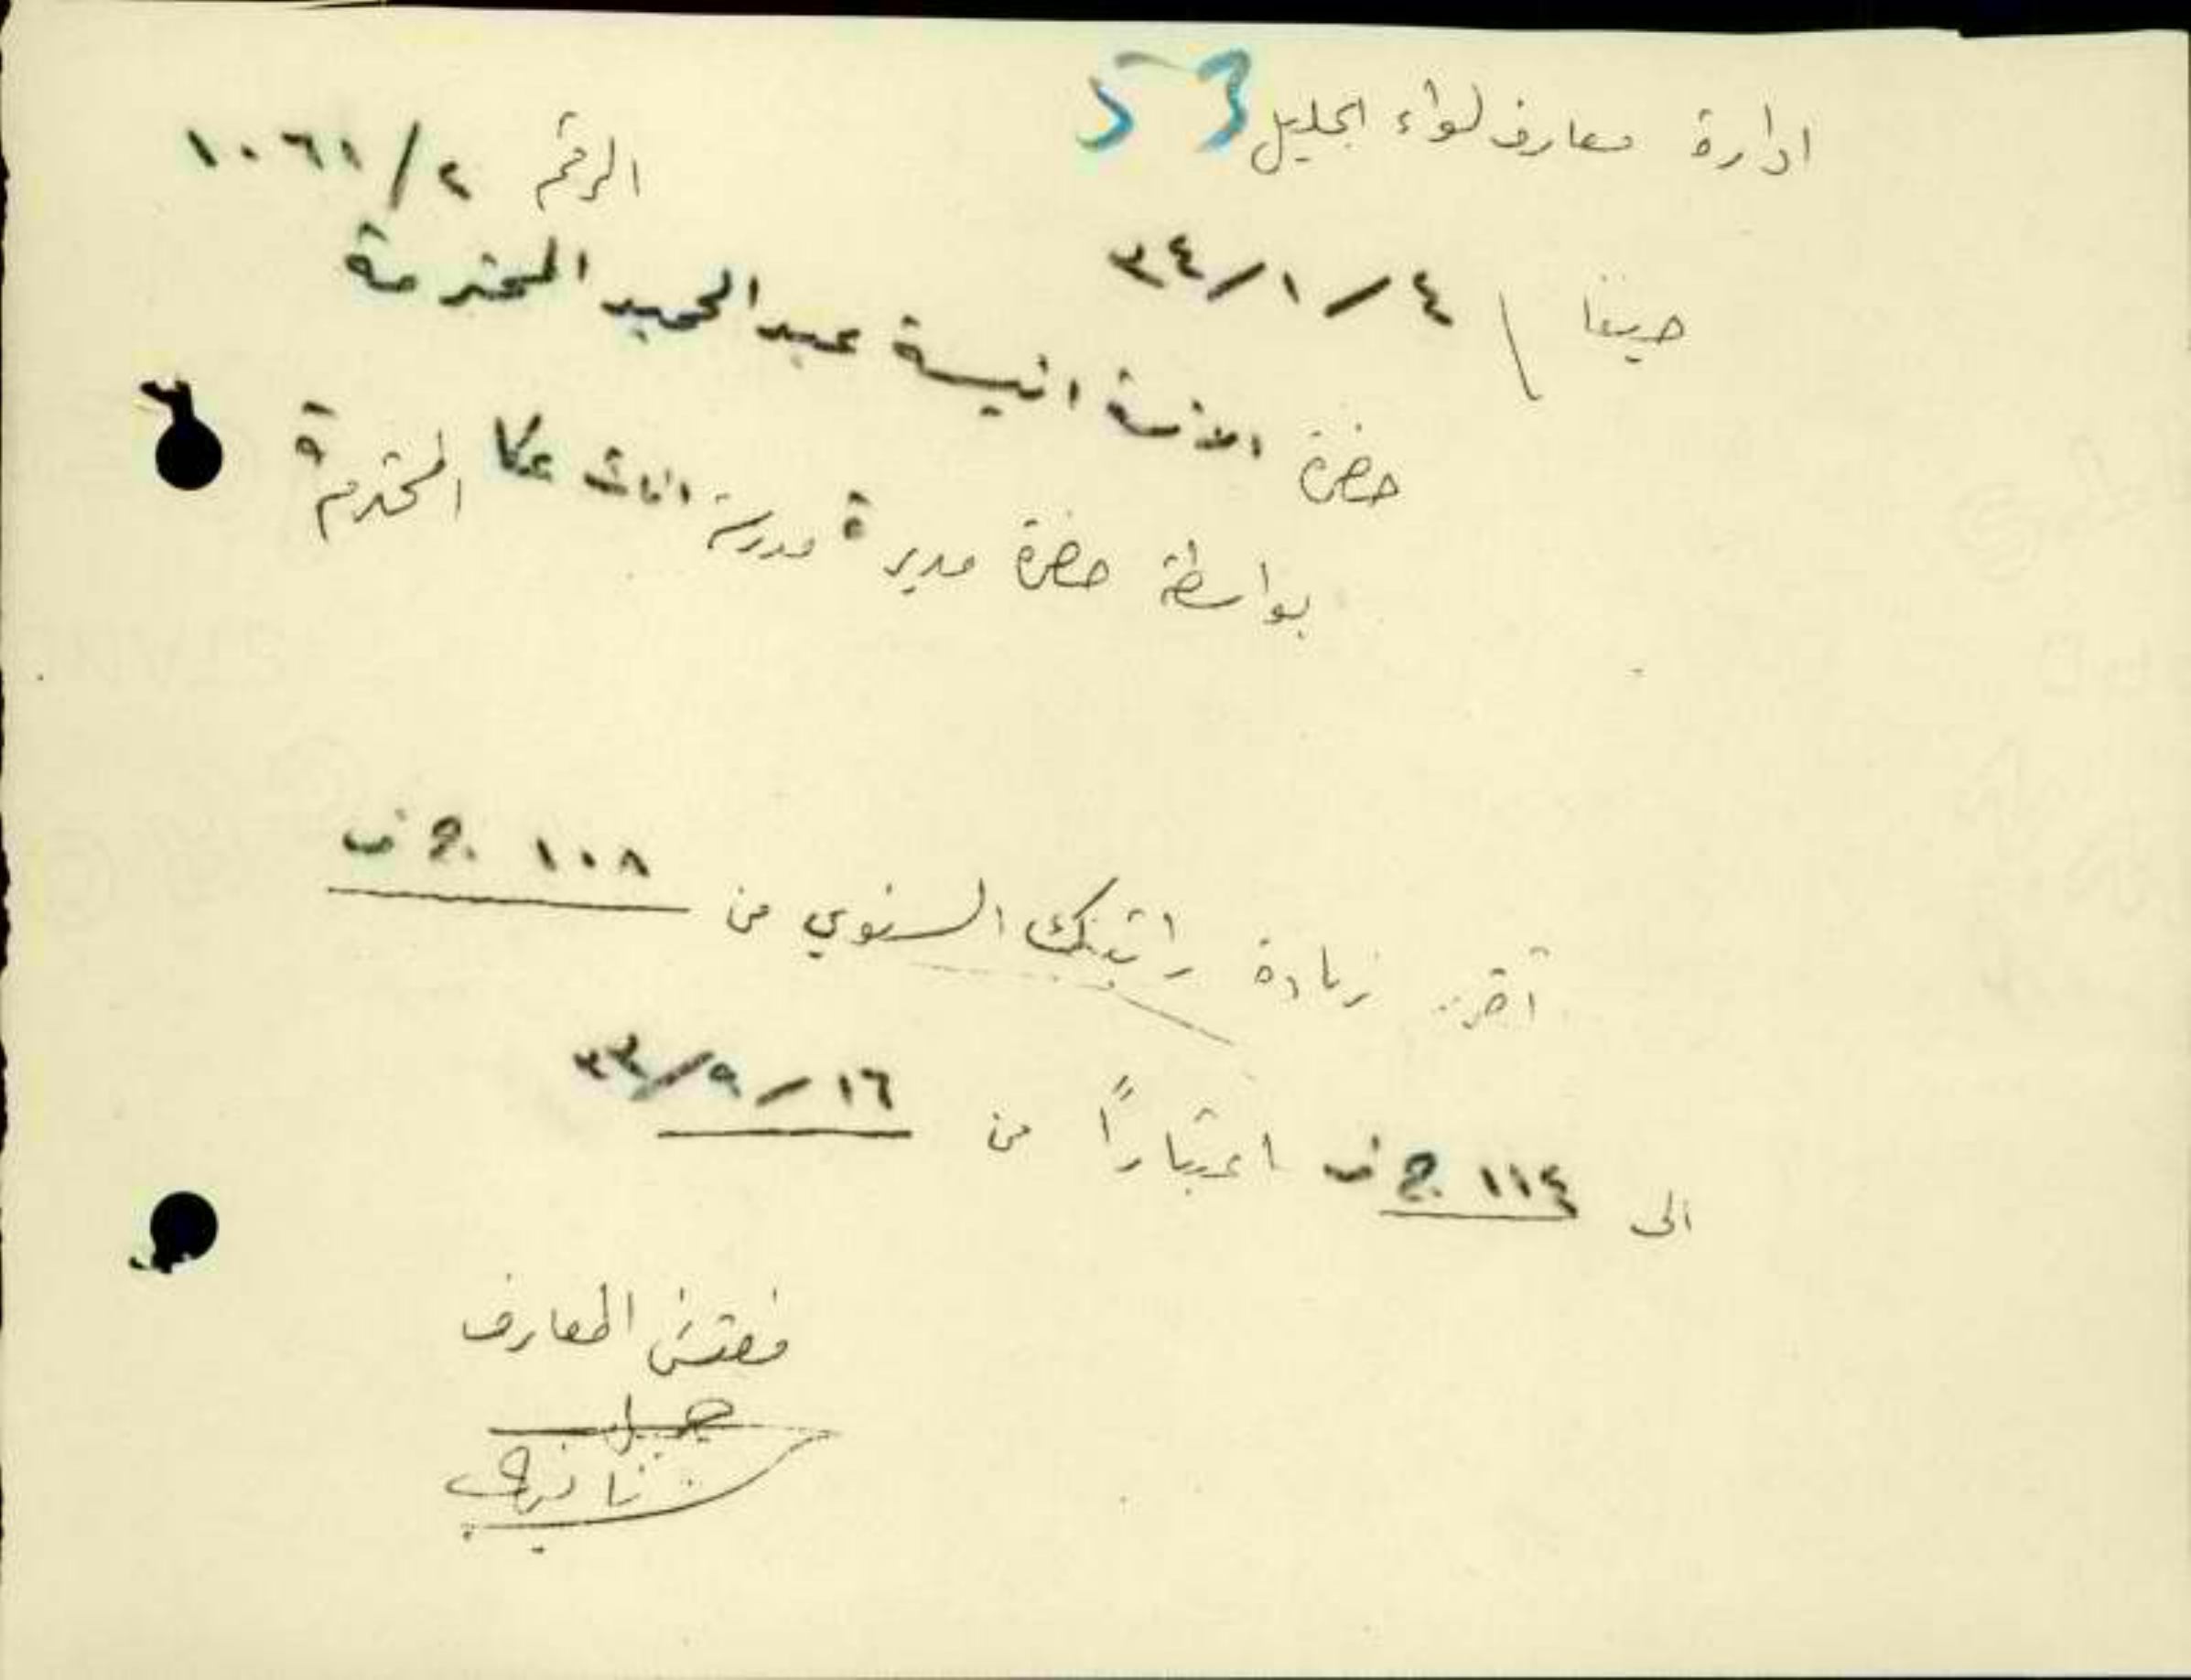 ادارة معارف لواء الجليل 53
الرقم ٢/١٠٦١
حيفا ٣٤/١/٤
حضرة الآنسة انيسة عبد الحميد المحترمة
بواسطة حضرة مديرة مدرسة اناث عكا المحترمة
زيادة راتبك السنوي من ١٠٨ ج ف
الى ١١٤ ج ف اعتباراً من ٣٣/٩/١٦
مفتش المعارف
جميل